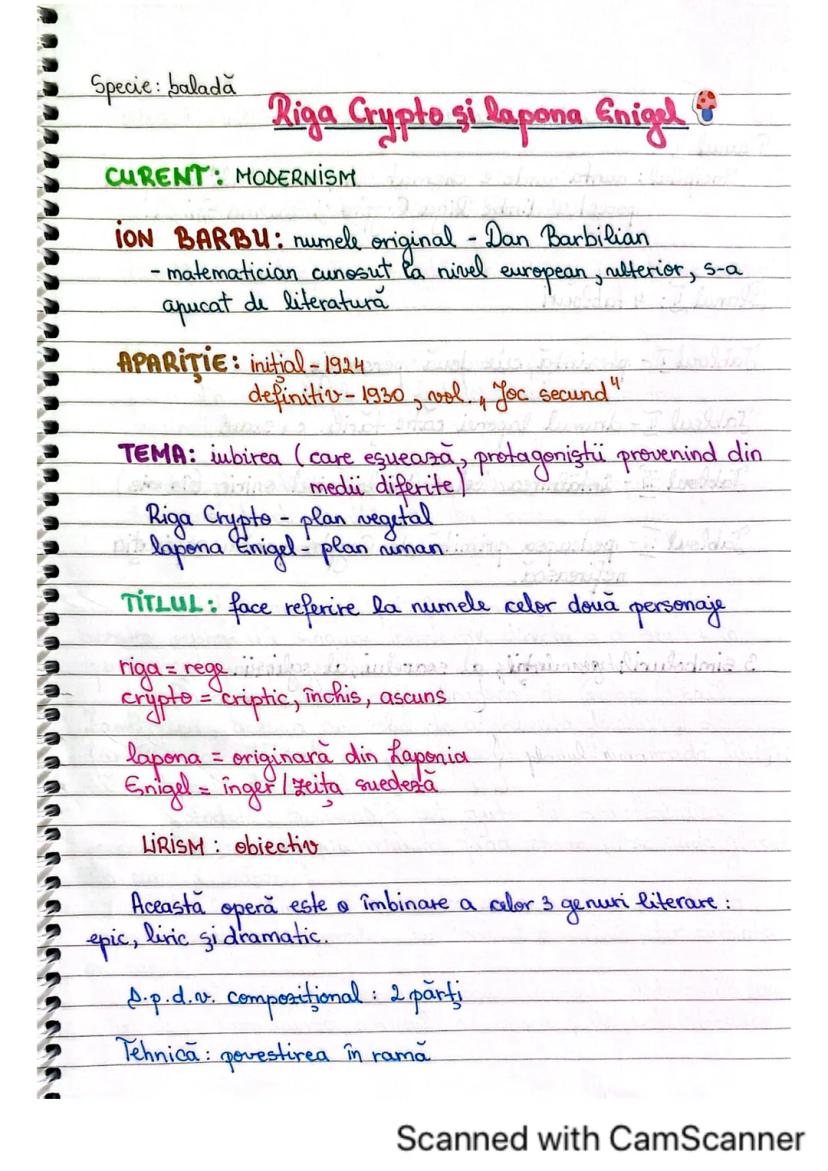 Specie: baladă
Riga Crypto și lapona Enigel
CURENT: MODERNISM
ION BARBU: numele original - Dan Barbilian
- matematician cunosut la nivel european, ulterior, s-a
apucat de literatură
APARIȚIE: inițial - 1924
definitiv - 1930, vol. „Joc secund"
TEMA: iubirea (care eșuează, protagoniștii provenind din
medii diferite)
Riga Crypto - plan vegetal
lapona Enigel - plan uman
TITLUL: face referire la numele celor două personaje
riga = rege
crypto = criptic, închis, ascuns
lapona = originară din Laponia
Enigel = înger / zeița suedeză
LIRISM: obiectiv
Această operă este o îmbinare a celor 3 genuri literare:
epic, liric și dramatic.
D.p.d.v. compozițional: 2 părți
Tehnică: povestirea în ramă
Scanned with CamScanner